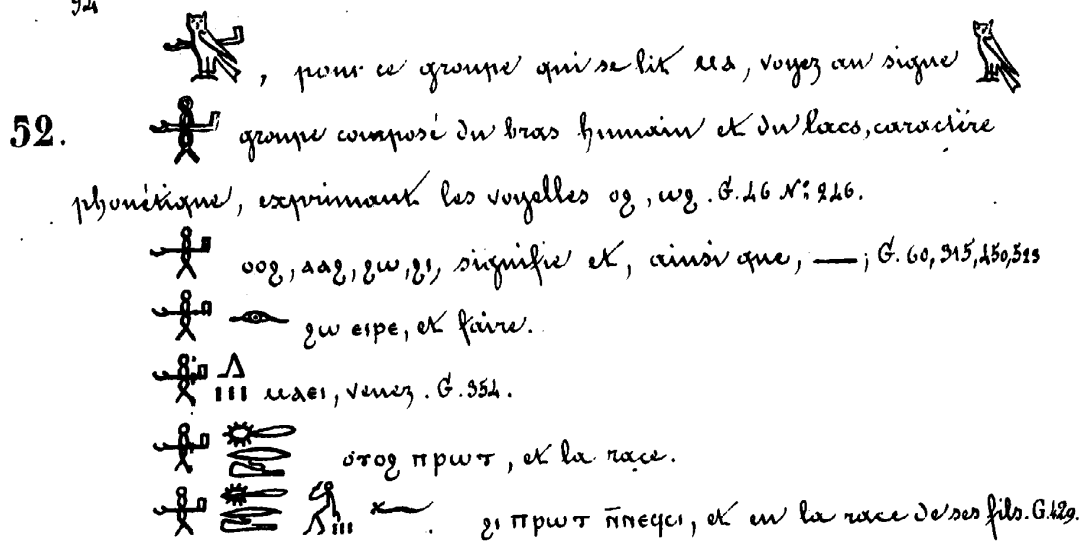 94
, pour ce groupe qui se lit ⲙⲁ, voyez au signe
52. groupe composé du bras humain et du lacs, caractère
phonétique, exprimant les voyelles ⲟϩ, ⲱϩ. G. 46 Nº 246.
ⲟⲟϩ, ⲁⲁϩ, ϩⲱ, ϩⲓ, signifie et, ainsi que, —; G. 60, 315, 450, 523
ϩⲱ ⲉⲓⲣⲉ, et faire.
ⲙⲁⲉⲓ, venez. G. 354.
ⲟⲩⲟϩ ⲡⲣⲱⲧ, et la race.
ϩⲓ ⲡⲣⲱⲧ ⲛ̅ⲛⲉϥⲥⲓ, et en la race de ses fils. G. 429.